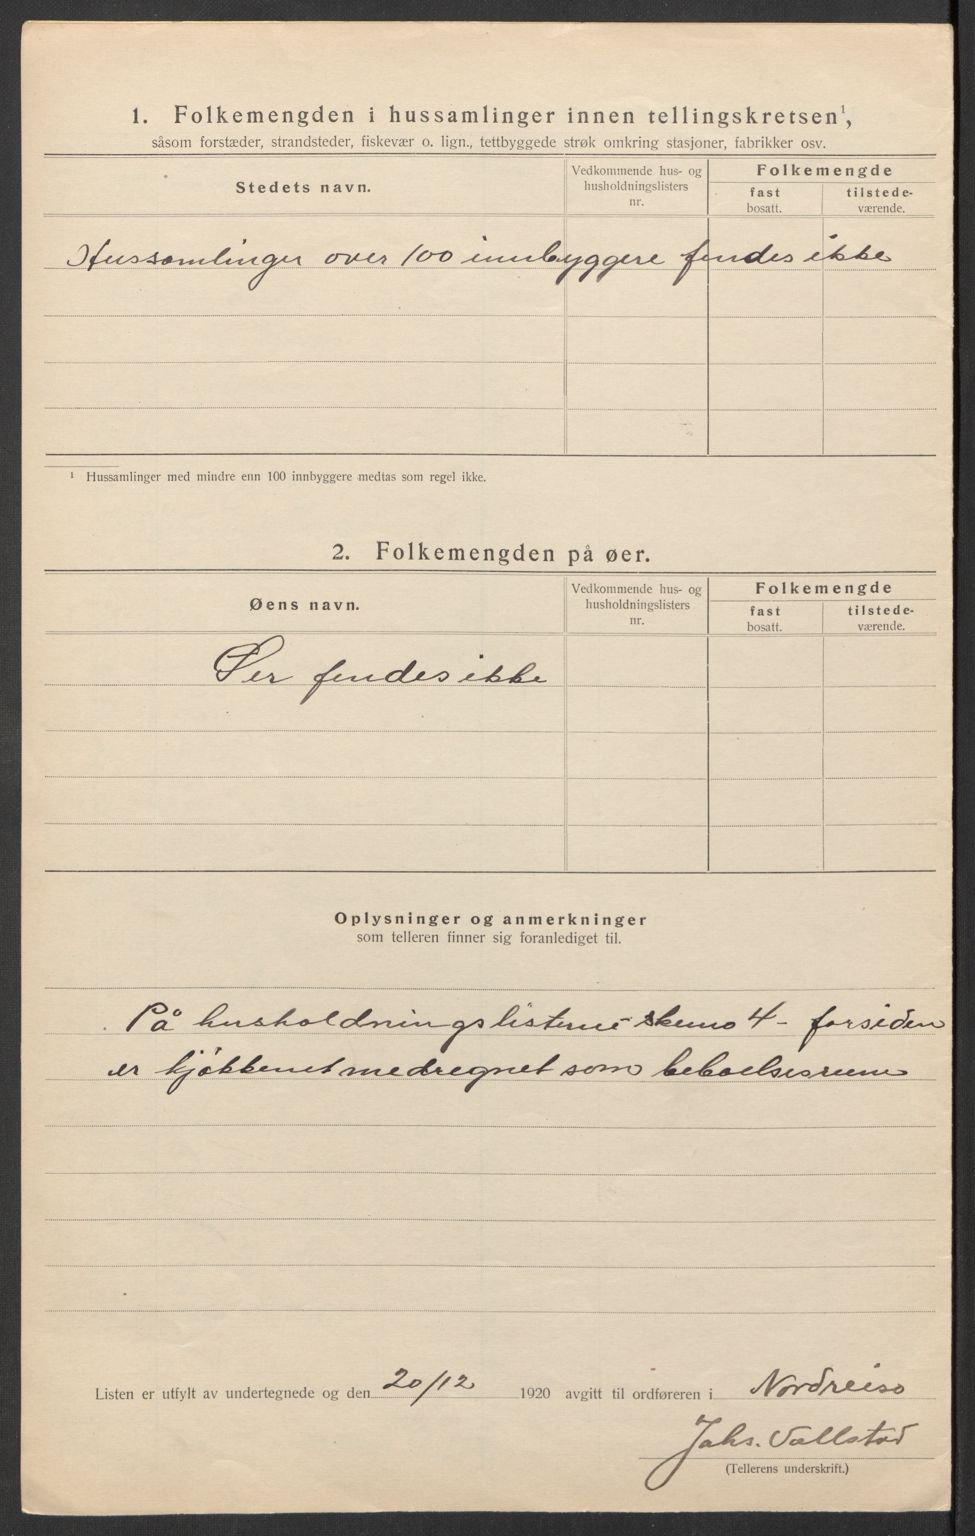 1. Folkemengden i hussamlinger innen tellingskretsen¹,
såsom forstæder, strandsteder, fiskevær o. lign., tettbyggede strøk omkring stasjoner, fabrikker osv.
Stedets navn.
Vedkommende hus- og
husholdningslisters
nr.
Folkemengde
fast
bosatt.
tilstede-
værende.
Hussamlinger over 100 innbyggere findes ikke
¹ Hussamlinger med mindre enn 100 innbyggere medtas som regel ikke.
2. Folkemengden på øer.
Øens navn.
Vedkommende hus- og
husholdningslisters
nr.
Folkemengde
fast
bosatt.
tilstede-
værende.
Øer findes ikke
Oplysninger og anmerkninger
som telleren finner sig foranlediget til.
På husholdningslisterne skema 4 - forsiden
er kjøkkenet medregnet som beboelsesrum
Listen er utfylt av undertegnede og den 20/12 1920 avgitt til ordføreren i Nordreisa
Johs. Vallstad
(Tellerens underskrift.)